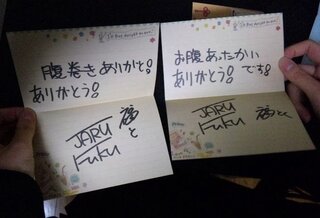 腹巻きありがと!
ありがとう!
JARU
FUKU
福
と
お腹あったかい
ありがとう! です!
JARU
FUKU
福